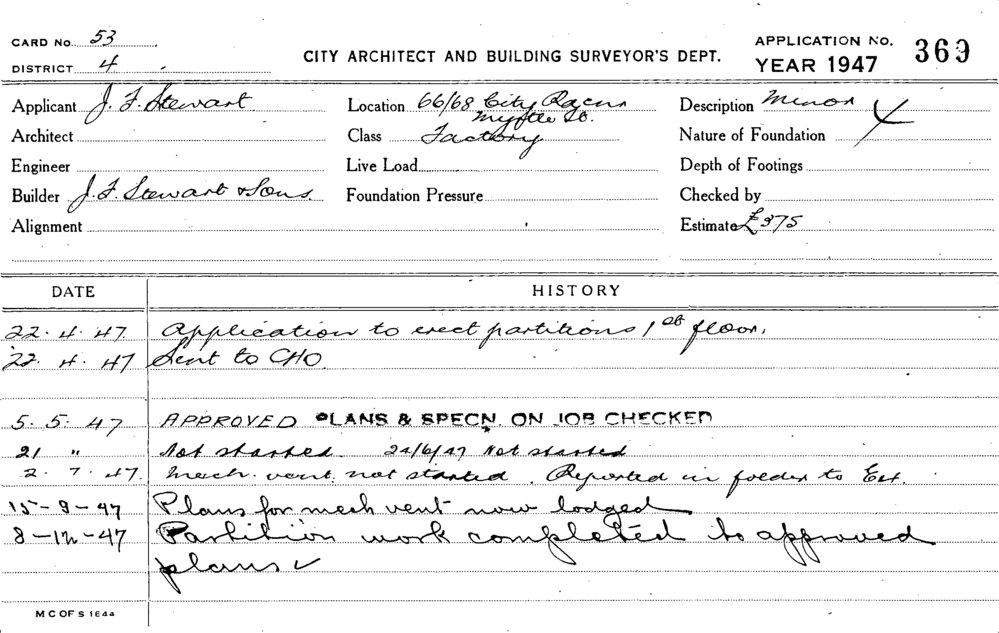 CARD No. 53
DISTRICT 4
CITY ARCHITECT AND BUILDING SURVEYOR'S DEPT.
APPLICATION No. 369
YEAR 1947
Applicant J. F. Stewart
Location 66/68 City Rd
Myrtle St.
Description Minor
Architect
Class Factory
Nature of Foundation
Engineer
Live Load
Depth of Footings
Builder J. F. Stewart & Sons.
Foundation Pressure
Checked by
Alignment
Estimate £375
DATE HISTORY
22.4.47 Application to erect partitions 1st floor.
22.4.47 Sent to CHO.
5.5.47 APPROVED PLANS & SPECN. ON JOB CHECKED
21 " Not started. 24/6/47 Not started
2.7.47. Mech. vent. not started. Reported in folder to Ext.
15-9-47 Plans for mech vent now lodged
8-12-47 Partition work completed to approved
plans
M C OF S 1844